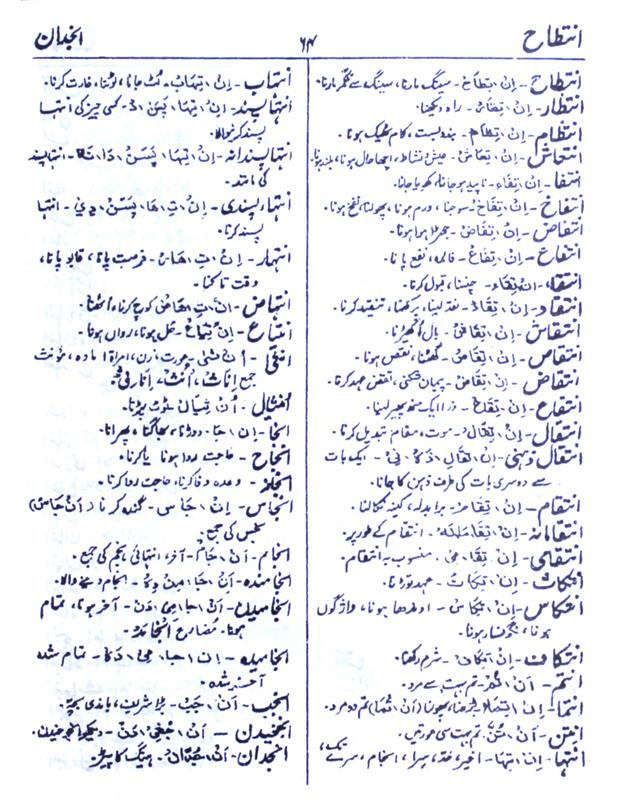 انتطاح
۶۴
انجدان
انتطاح - اِنْ تِطَاحْ - سینگ مارنا، سینگ سے ٹکر مارنا۔
انتظار - اِنْ تِظَارْ - راہ دیکھنا۔
انتظام - اِنْ تِظَامْ - بندوبست، کام ٹھیک ہونا۔
انتعاش - اِنْ تِعَاشْ - عیش و نشاط، اچھا حال ہونا،
انتفا - اِنْ تِفَاء - ناپید ہو جانا، کھویا جانا۔
انتفاخ - اِنْ تِفَاخْ - سوجنا، ورم ہونا، پھولنا، نفخ ہونا۔
انتفاض - اِنْ تِفَاضْ -
انتفاع - اِنْ تِفَاعْ - فائدہ، نفع پانا۔
انتقاء - اِنْ تِقَاء - چننا، قبول کرنا۔
انتقاد - اِنْ تِقَادْ - نقد لینا، پرکھنا، تنقید کرنا۔
انتقاش - اِنْ تِقَاشْ - بال اکھیڑنا۔
انتقاص - اِنْ تِقَاصْ - گھٹنا، نقص ہونا۔
انتقاض - اِنْ تِقَاضْ - پیمان شکنی، نقض عہد کرنا۔
انتقاع - اِنْ تِقَاعْ - ذرا ایک منہ پھیر لینا۔
انتقال - اِنْ تِقَالْ - موت، مقام تبدیل کرنا۔
انتقال ذہنی - اِنْ تِقَالِ ذِہْ نِیْ - ایک بات
سے دوسری بات کی طرف ذہن کا جانا۔
انتقام - اِنْ تِقَامْ - برا بدلہ، کینہ نکالنا۔
انتقامانہ - اِنْ تِقَامَانَہْ - انتقام کے طور پر۔
انتقامی - اِنْ تِقَامِیْ - منسوب بہ انتقام۔
انتکاث - اِنْ تِکَاثْ - عہد توڑنا۔
انتکاس - اِنْ تِکَاسْ - اوندھا ہونا، واژگوں
ہونا، نگونسار ہونا۔
انتکاف - اِنْ تِکَافْ - شرم رکھنا۔
انتم - اَنْ تُمْ - تم بہت سے مرد۔
انتما - اِنْ تِمَاءْ بڑھنا، پھولنا (اَنْ تُمَا) تم دو مرد۔
انتن - اَنْ تُنَّ تم بہت سی عورتیں۔
انتہا - اِنْ تِہَا - اخیر، حد، سرا، انجام، سرے تک،
انتہاب - اِنْ تِہَابْ - لٹ جانا، لوٹنا، غارت کرنا۔
انتہا پسند - اِنْ تِہَا پَسَنْ دْ - کسی چیز کی انتہا
پسند کرنے والا۔
انتہا پسندانہ - اِنْ تِہَا پَسَنْ دَانَہْ - انتہا پسند
کی مانند۔
انتہا پسندی - اِنْ تِہَا پَسَنْ دِیْ - انتہا
پسند کرنا۔
انتہاز - اِنْ تِہَازْ - فرصت پانا، قابو پانا،
وقت تاکنا۔
انتہاض - اِنْ تِہَاضْ کوچ کرنا، اٹھنا۔
انتیاع - اِنْ تِیَاعْ - حل ہونا، رواں ہونا۔
انثیٰ - اُنْ ثیٰ - عورت، زن، امراۃ، مادہ، مؤنث
جمع اِنَاثْ، اُنُثْ، اَنَارِثْ۔
انثیال - اِنْ ثِیَالْ ٹوٹ پڑنا۔
انجا - اِنْ جَا - دوڑنا، بھاگنا، پھرانا۔
انجاح - حاجت روا ہونا یا کرنا۔
انجاز - وعدہ وفا کرنا، حاجت روا کرنا۔
انجاس - اِنْ جَاسْ - گندہ کرنا (اَنْ جَاسْ)
نجس کی جمع۔
انجام - اَنْ جَامْ - آخر، انتہائی، نجم کی جمع۔
انجامندہ - اَنْ جَا مِنْ دَہْ - انجام دینے والا۔
انجامیدن - اَنْ جَا مِیْ دَنْ - آخر ہونا، تمام
ہونا۔ مضارع اَنْجَامَدْ۔
انجامیدہ - اِنْ جَا مِیْ دَہْ - تمام شدہ
آخر شدہ۔
انجب - اَنْ جَبْ - بڑا شریف،
انجخیدن - اَنْ جَخِیْ دَنْ -
انجدان - اَنْ جُدَانْ - ہینگ کا پیڑ۔